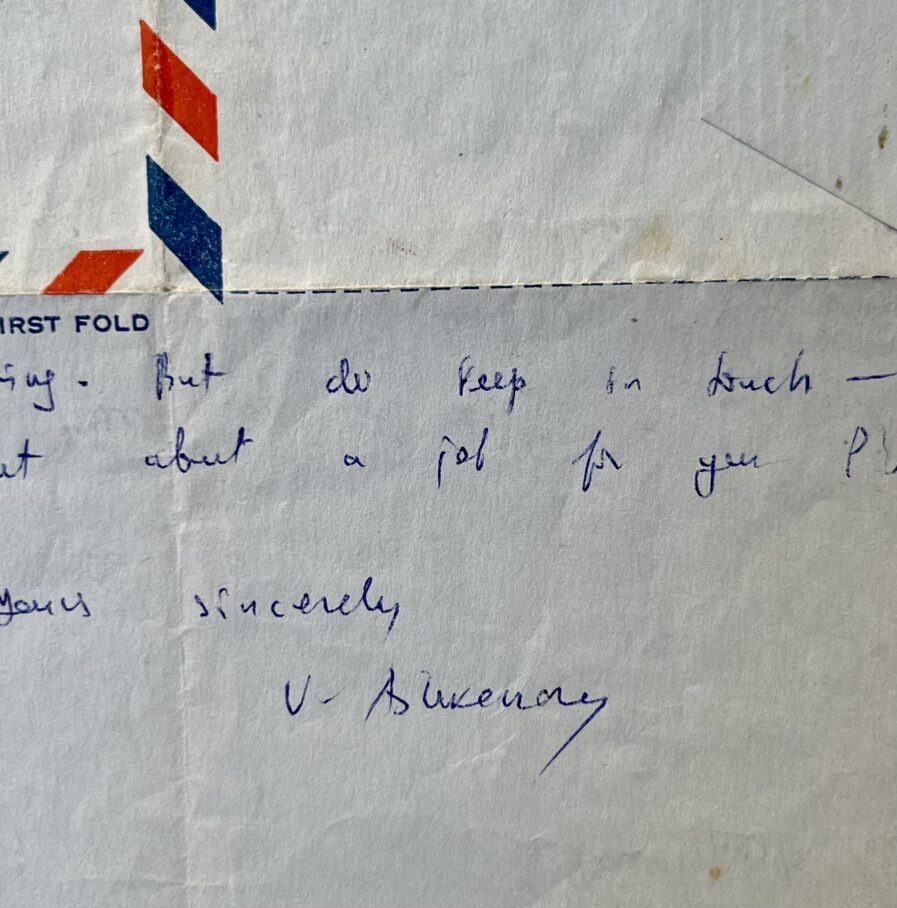 IRST FOLD
ing. But do keep in touch —
ut about a job for you
yours sincerely
V. Ashkenazy